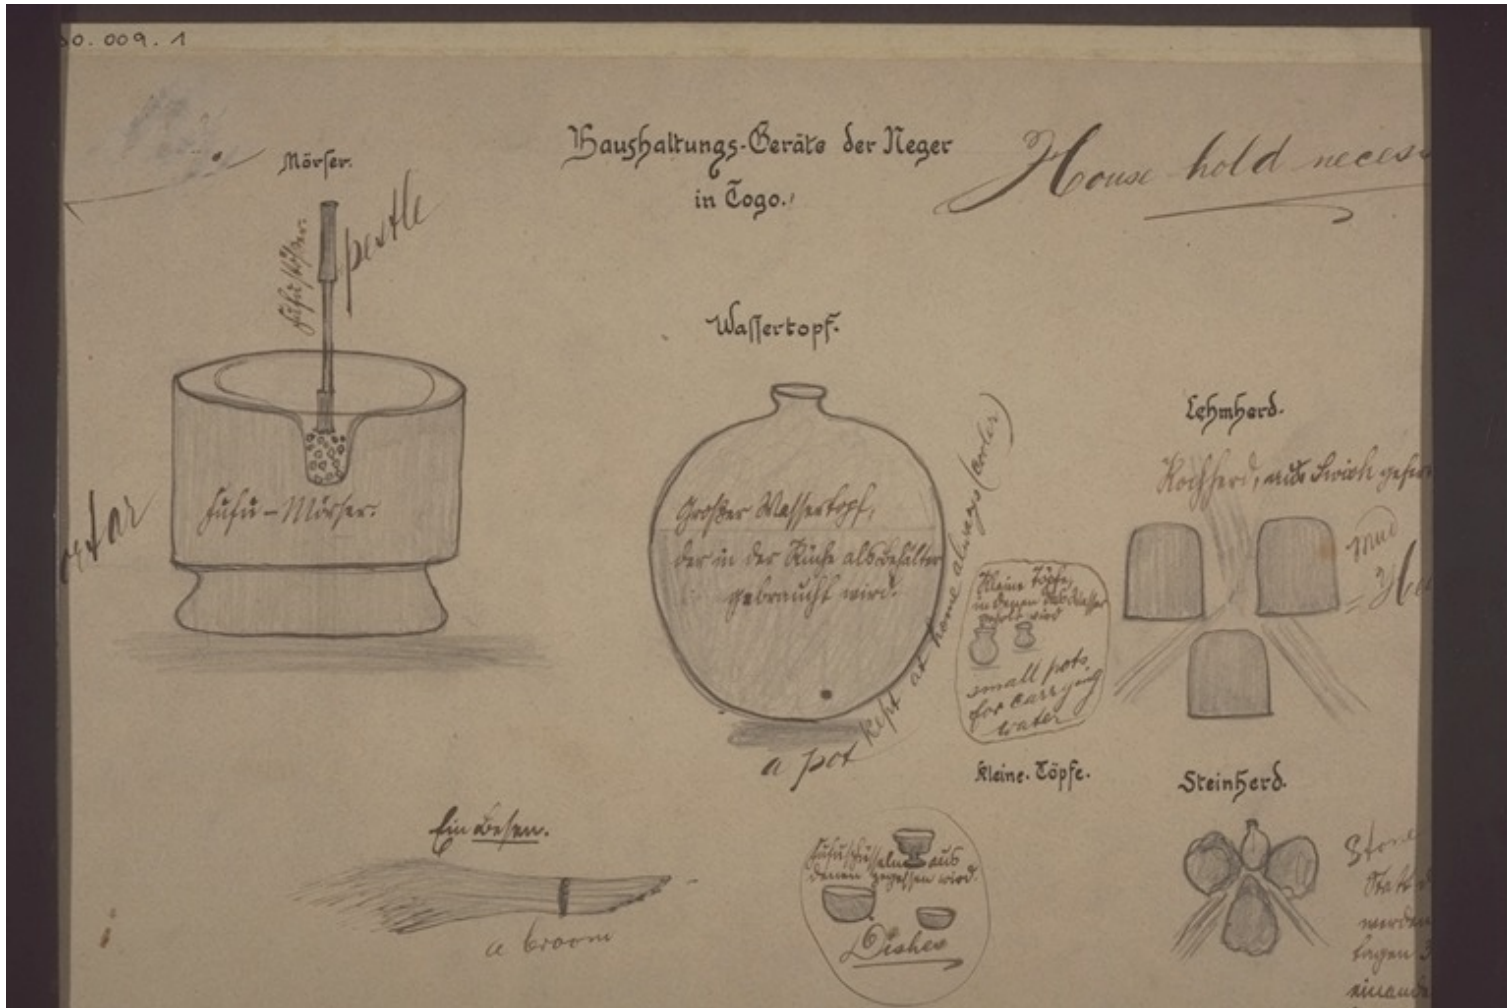 00.009.1
Haushaltungs-Geräte der Neger
in Togo.
House hold neces
Mörser.
Fufustößer.
pestle
Fufu-Mörser.
ortar
Wassertopf.
Großer Wassertopf,
der in der Küche als Behälter
gebraucht wird.
a pot kept at home always (cooler)
Kleine Töpfe,
in denen das Wasser
geholt wird
small pots
for carrying
water
Kleine Töpfe.
Lehmherd.
Kochherd, aus Swish gefer
mud
Steinherd.
Stone
Statt d
werden
lagen 3
einande
Ein Besen.
a broom
Fufuschüsseln aus
denen gegessen wird.
Dishes